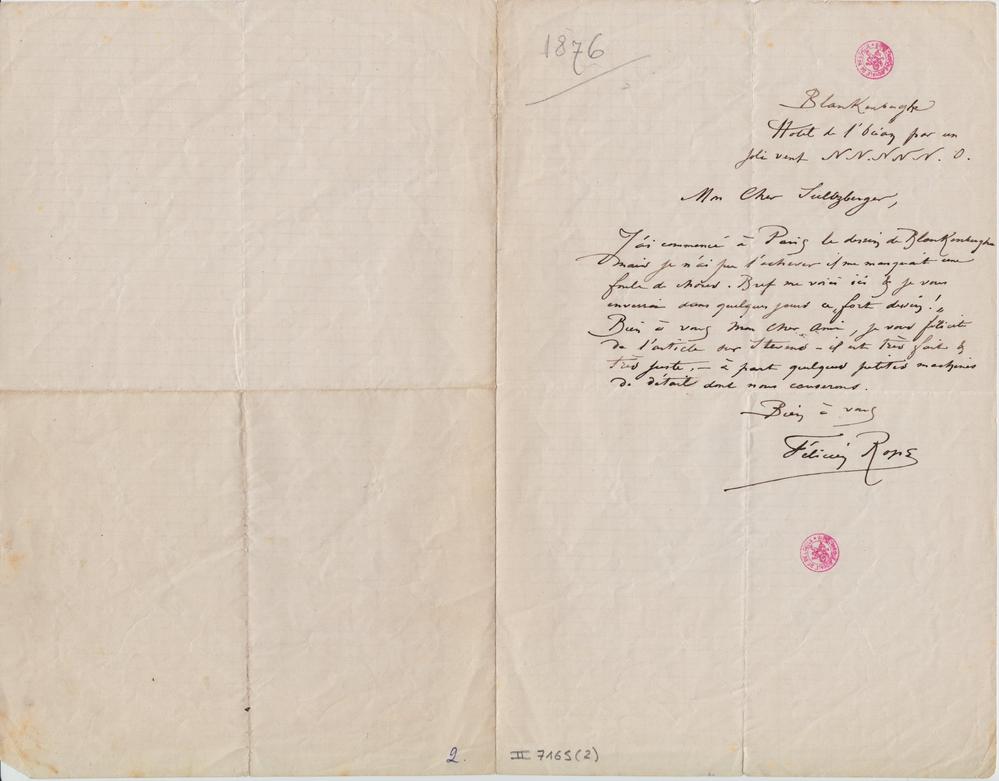 1876
Blankenberghe
Hotel de l'Océan par un
joli vent N.N.N.N.N. O.
Mon Cher Sultzberger,
J'ai commencé à Paris le dessin de Blankenberghe
mais je n'ai pu l'achever il me manquait une
foule de choses. Bref me voici ici & je vous
enverrai dans quelques jours ce „fort dessin!"
Bien à vous mon cher Ami, je vous félicite
de l'article sur Stevens – il est très fait &
très juste, – à part quelques petites machines
de détail dont nous causerons.
Bien à vous
Félicien Rops
2. II 7165(2)